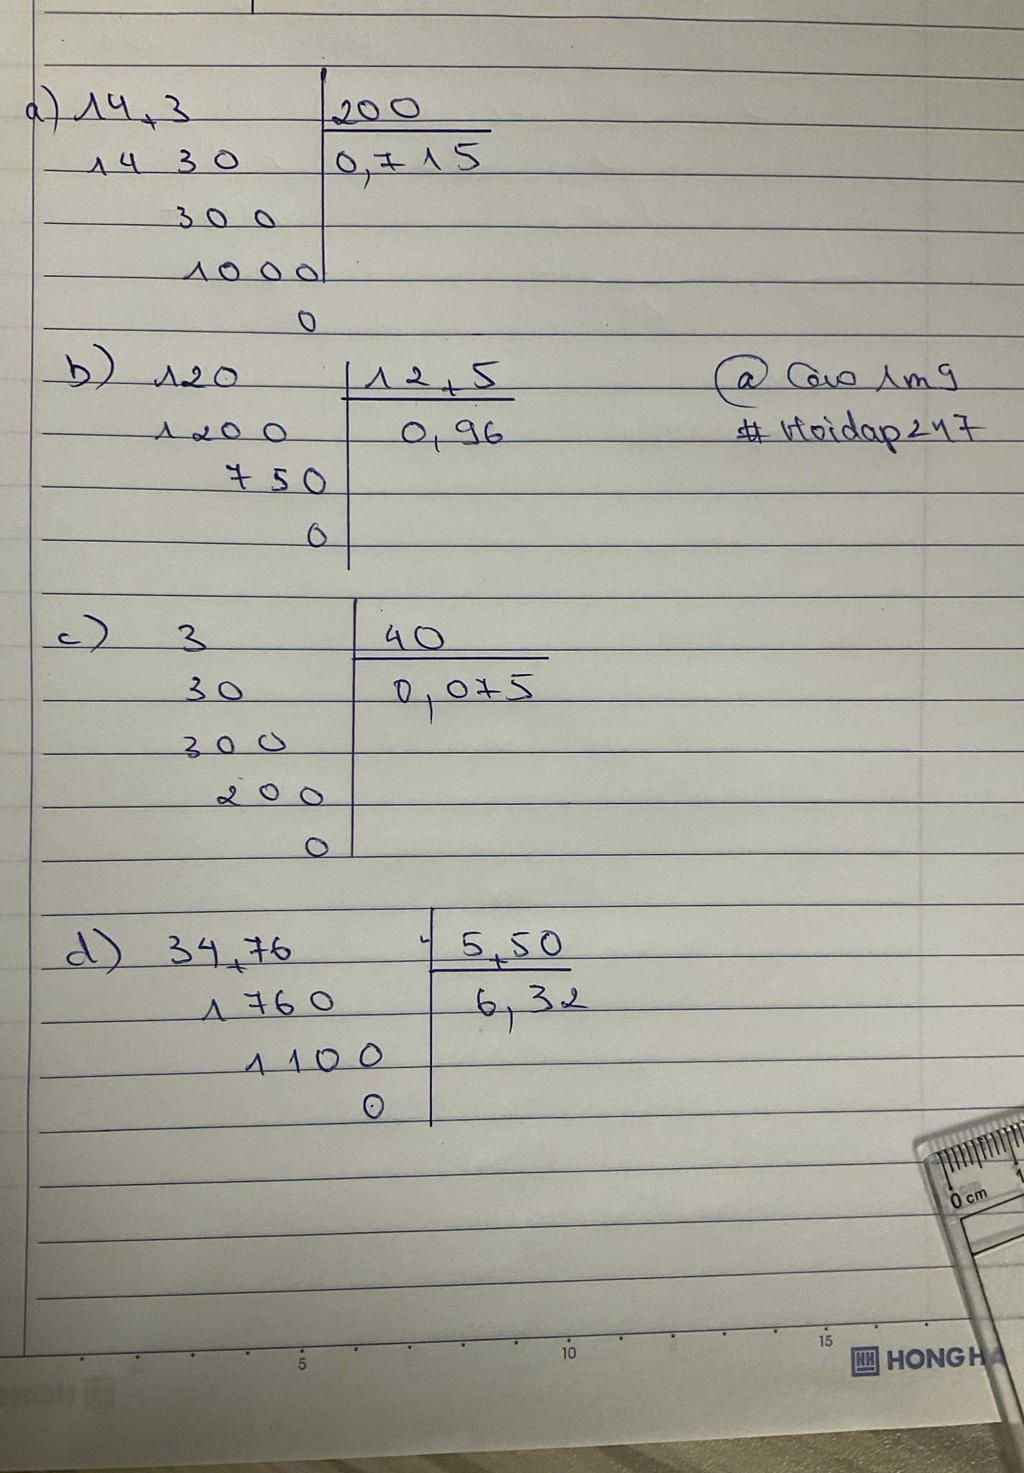 a) 14,3 200
14 30 0,715
300
1000
0
b) 120 12,5
1200 0,96
750
0
@ Cao 1m9
# Hoidap247
c) 3 40
30 0,075
300
200
0
d) 34,76 5,50
1760 6,32
1100
0
0 cm
5 10 15
HONG HA